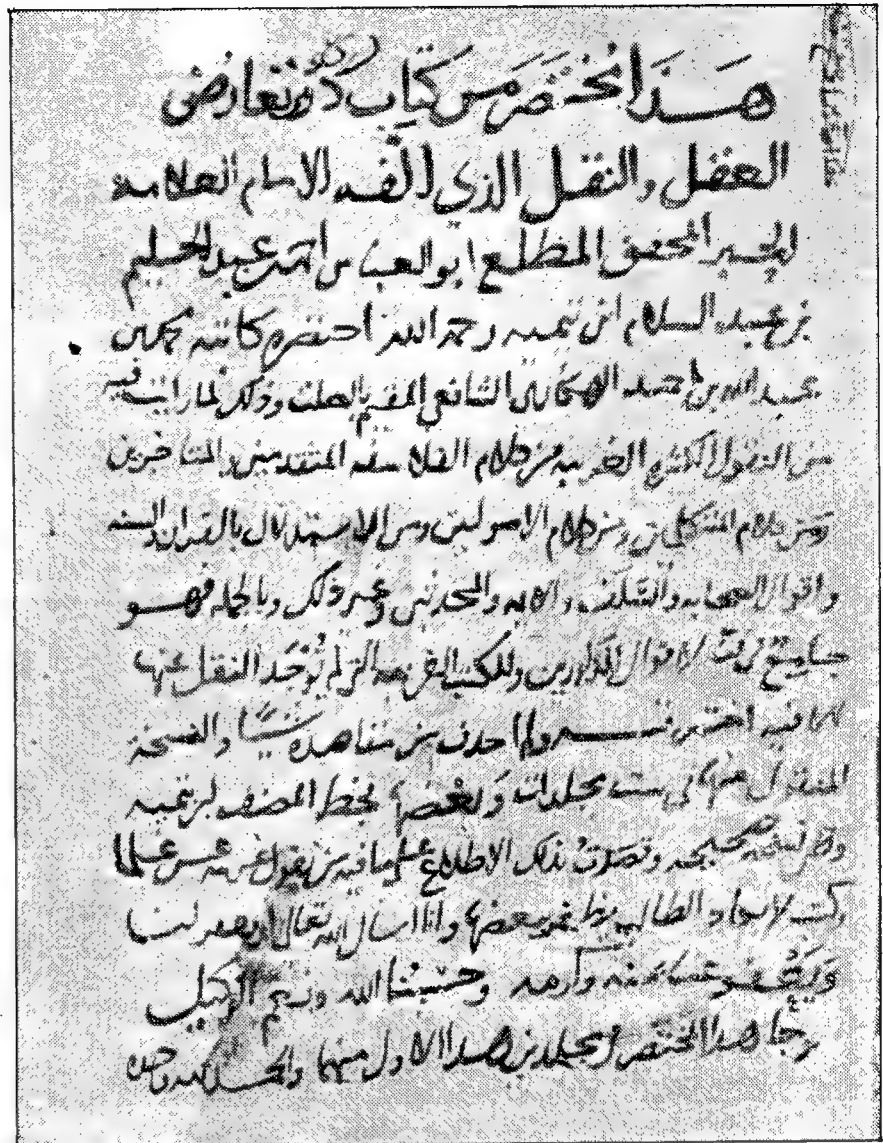 هذا مختصر من كتاب درء تعارض
العقل والنقل الذي الفه الامام العلامة
الحبر المحقق المطلع ابو العباس احمد عبد الحليم
بن عبد السلام ابن تيميه رحمه الله اختصره كاتبه محمد بن
عبد الله بن احمد الهكاري الشافعي المقيم بالصلت وذلك لما رايت فيه
من النقول الكثيره الغريبه من كلام الفلاسفه المتقدمين والمتاخرين
ومن كلام المتكلمين ومن كلام الاصوليين ومن الاستدلال بالقران والسنه
واقوال الصحابه والسلف والايمه والمحدثين وغير ذلك وبالجمله فهو
جامع لاقوال وللكتب الغريبه التي لم يوجد النقل عنها
الا فيه ولم احذف من مقاصده شيئا والنسخة
المنقول منها في ست مجلدات وبعضها بخط المصنف ابن تيميه
وهي نسخه صحيحه وقصدت بذلك الاطلاع على ما فيه من نقول
الطالب يظفر ببعضها وانا اسال الله تعالى ان يغفر لنا
ويعفو عنا بمنه وكرمه وحسبنا الله ونعم الوكيل
وجا هذا المختصر في مجلدين هذا الاول منهما والحمد لله وحده